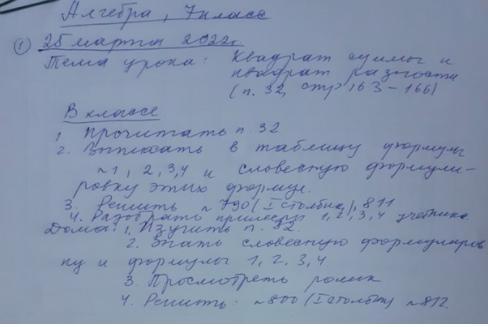 Алгебра, 7 класс
① 25 марта 2022г.
Тема урока: Квадрат суммы и
квадрат разности
(п. 32, стр 163-166)
В классе
1. Прочитать п 32
2. Выписать в таблицу формулы
№ 1, 2, 3, 4 и словесную формули-
ровку этих формул.
3. Решить № 790 (I столбик), 811
4. Разобрать примеры 1, 2, 3, 4 учебника
Дома: 1, Изучить п. 32.
2. Знать словесную формулиров
ку и формулы 1, 2, 3, 4
3. Просмотреть ролик
4. Решить: № 800 (I столбик) № 812